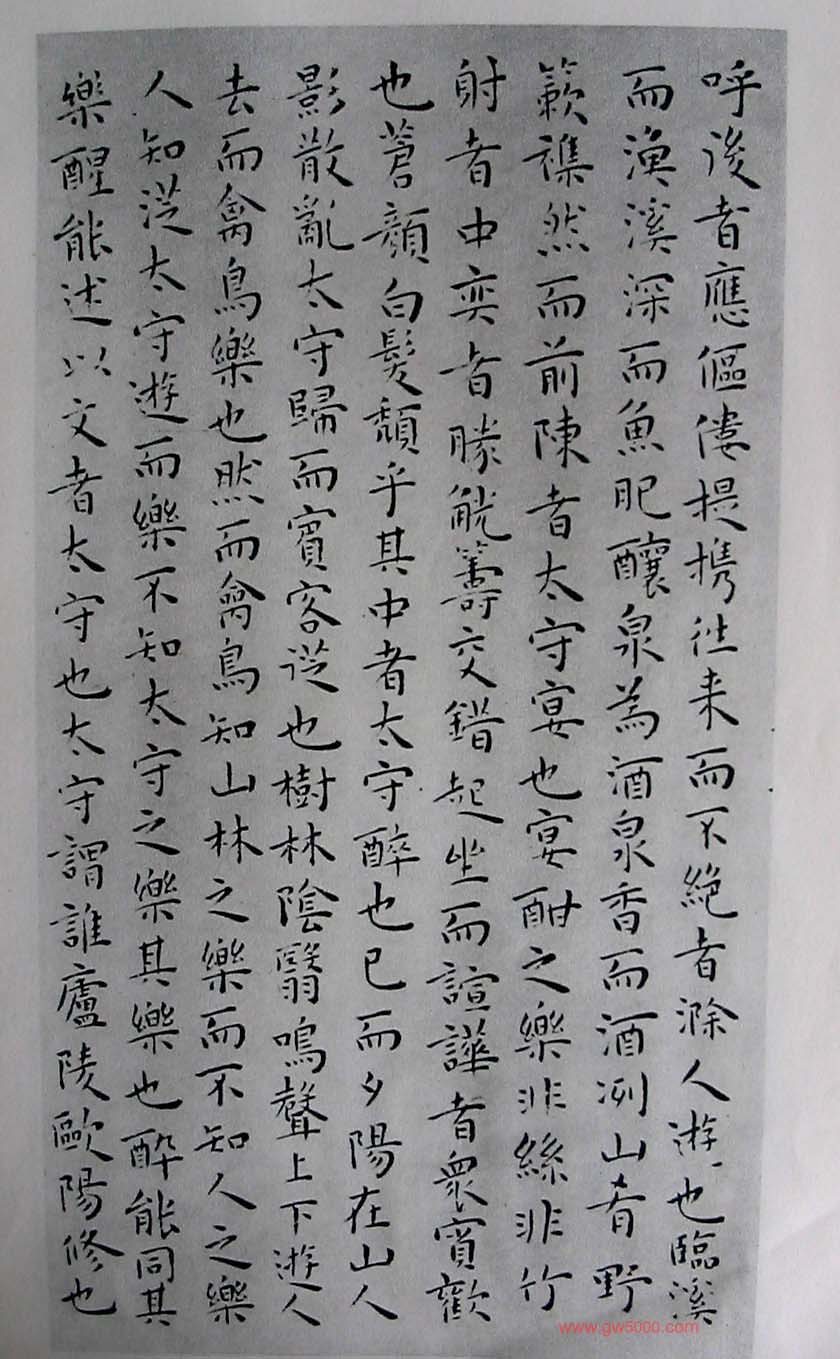 呼後者應傴僂提攜往来而不絕者滁人遊也臨溪
而漁溪深而魚肥釀泉為酒泉香而酒冽山肴野
蔌襍然而前陳者太守宴也宴酣之樂非絲非竹
射者中奕者勝觥籌交錯起坐而諠譁者衆賓歡
也蒼顏白髮頹乎其中者太守醉也已而夕陽在山人
影散亂太守歸而賓客從也樹林陰翳鳴聲上下遊人
去而禽鳥樂也然而禽鳥知山林之樂而不知人之樂
人知從太守遊而樂不知太守之樂其樂也醉能同其
樂醒能述以文者太守也太守謂誰廬陵歐陽修也
www.gw5000.com